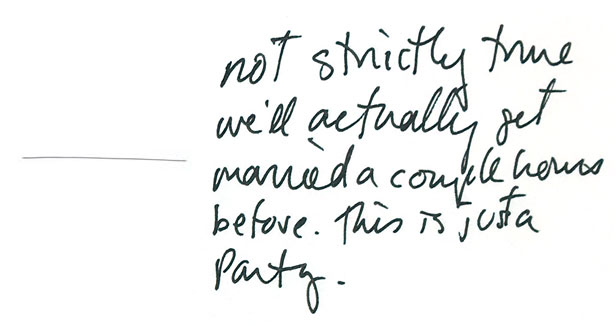 not strictly true
we'll actually get
married a couple hours
before. This is just a
Party.